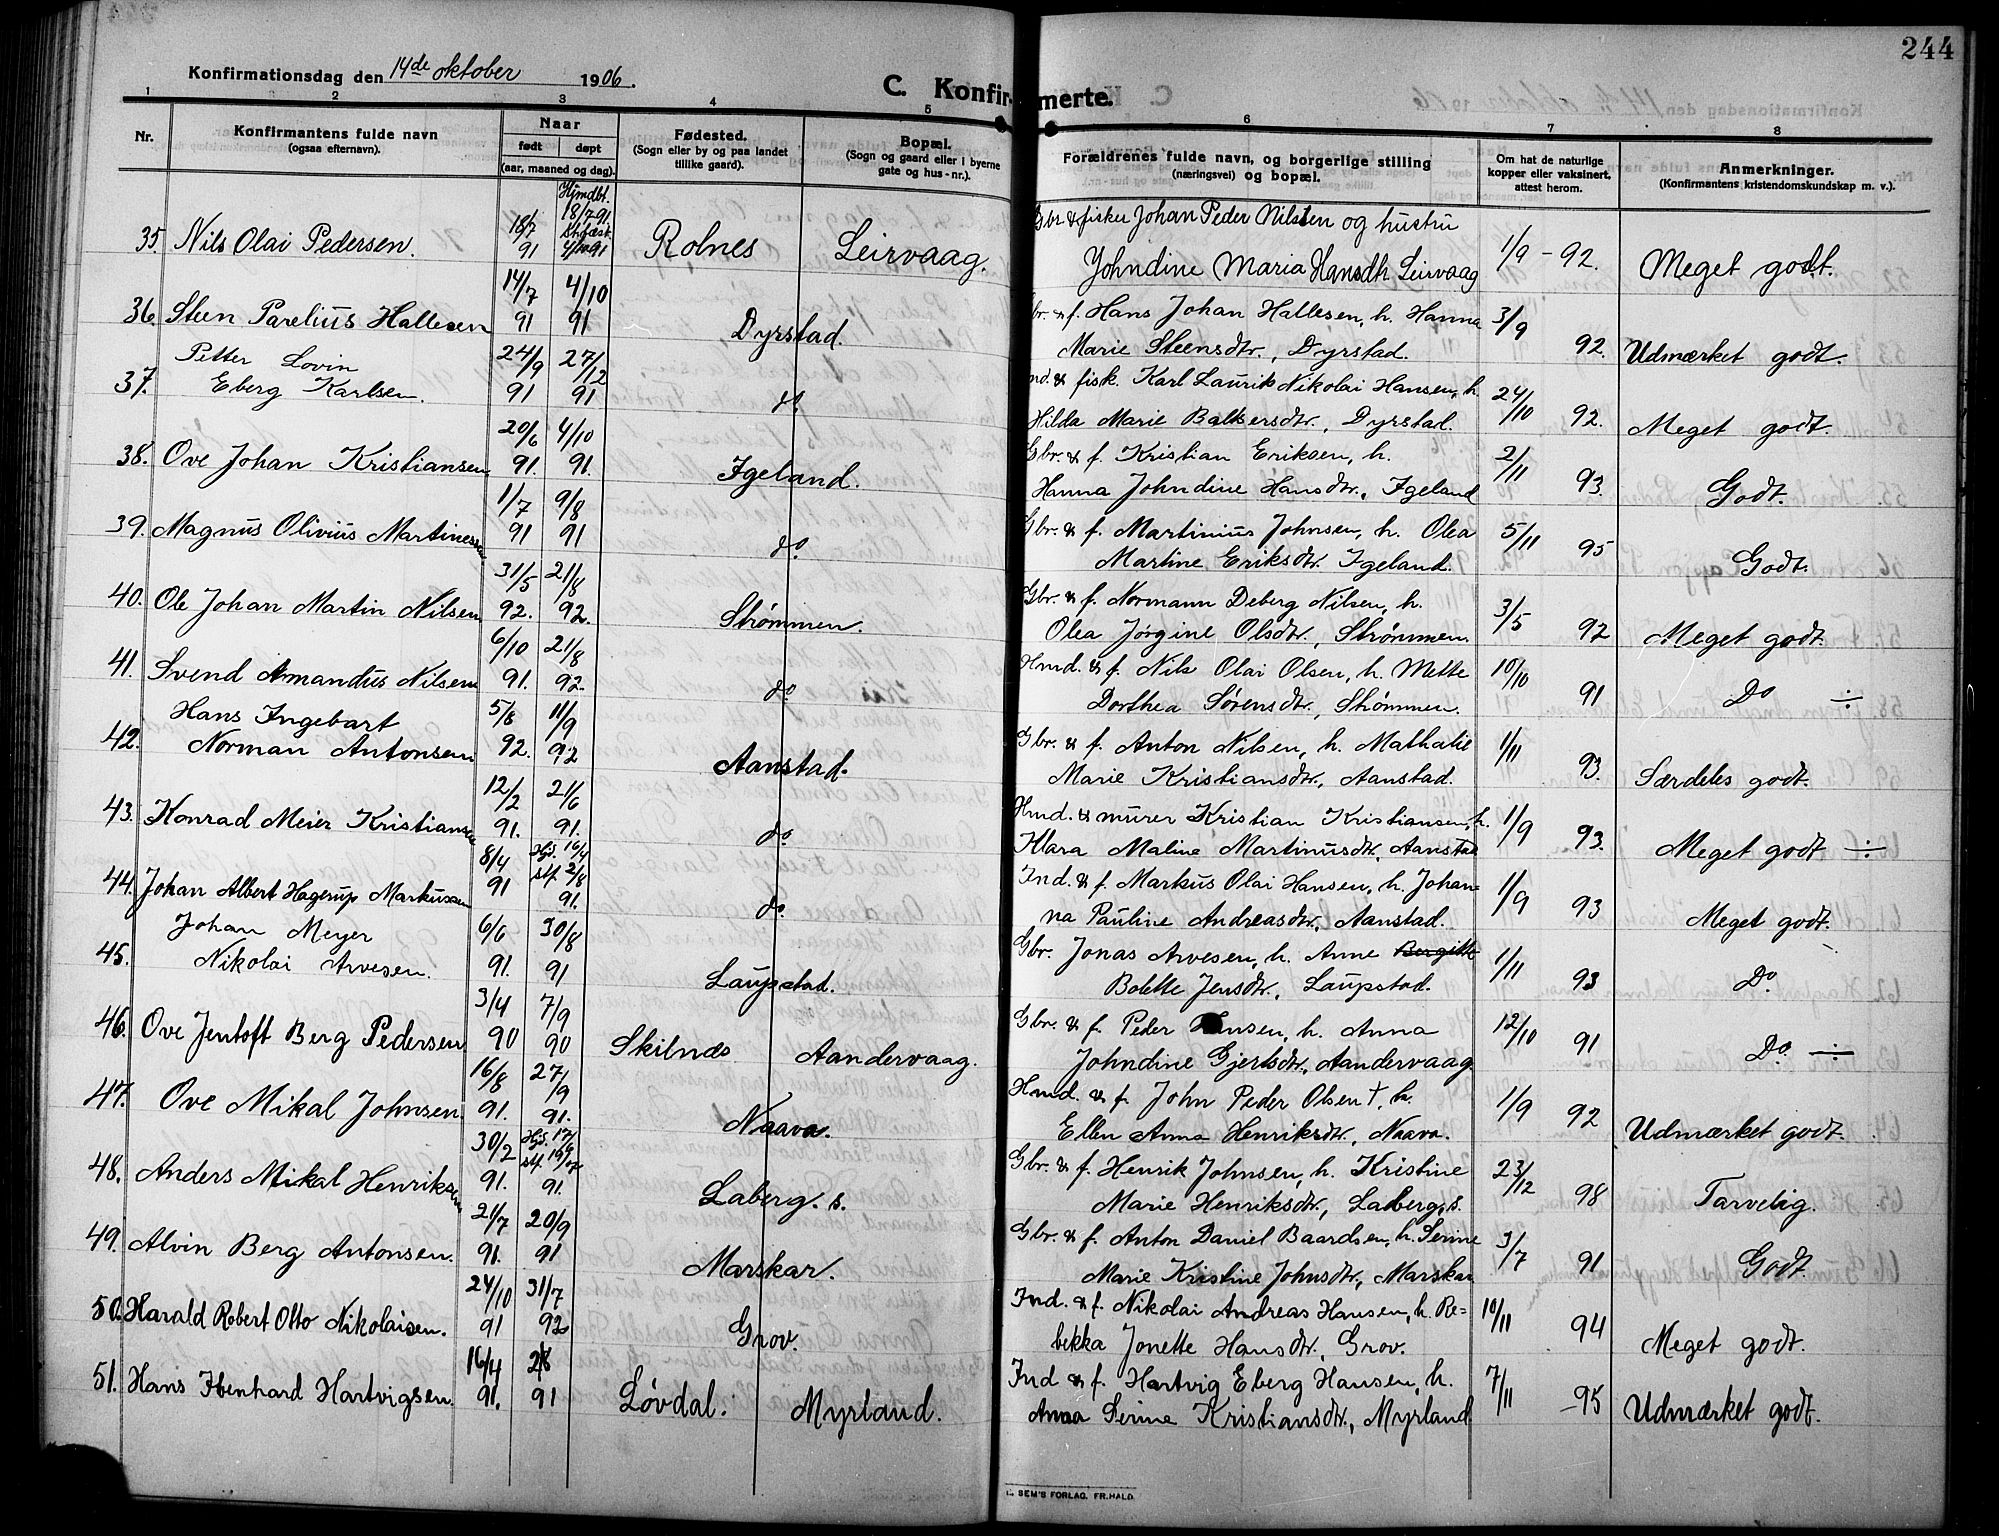 244
Konfirmationsdag den 14de oktober 1906.
C. Konfirmerte.
1 2 3 4 5 6 7 8
Nr. Konfirmantens fulde navn (ogsaa efternavn). Naar født døpt (aar, maaned og dag). Fødested. (Sogn eller by og paa landet tillike gaard). Bopæl. (Sogn og gaard eller i byerne gate og hus-nr.). Forældrenes fulde navn, og borgerlige stilling (næringsvei) og bopæl. Om hat de naturlige kopper eller vaksinert, attest herom. Anmerkninger. (Konfirmantens kristendomskundskap m. v.).
35. Nils Olai Pedersen. 18/7 91 Hjmdbt. 18/7 91 Rolnes Leirvaag. Gbr & fisker Johan Peder Nilsen og hustru
Johndine Maria Hansdtr. Leirvaag 1/9 - 92. Meget godt.
36. Steen Parelius Hallesen 14/7 91 4/10 91 Dyrstad. Gbr. & f. Hans Johan Hallesen, h. Hanna
Marie Steensdtr., Dyrstad. 3/9 92. Udmærket godt.
37. Petter Lovin
Eberg Karlsen. 24/9 91 27/12 91 do Ind. & fisk. Karl Laurik Nikolai Hansen, h.
Hilda Marie Baltsersdtr., Dyrstad. 24/10 92. Meget godt.
38. Ove Johan Kristiansen 20/6 91. 4/10 91. Igeland. Gbr. & f. Kristian Eriksen, h.
Hanna Johndine Hansdtr., Igeland 2/11 93. Godt.
39. Magnus Olivius Martinessen 1/7 91 9/8 91 do. Gbr. & f. Martinius Johnsen, h. Olea
Martine Eriksdtr. Igeland. 5/11 95 Godt.
40. Ole Johan Martin Nilsen 31/5 92. 21/8 92. Strømmen. Gbr. & f. Normann Deberg Nilsen, h.
Olea Jørgine Olsdtr., Strømmen. 3/5 92 Meget godt.
41. Svend Armandus Nilsen 6/10 91. 21/8 92. do Hmd. & f. Nils Olai Olsen, h. Mette
Dorthea Sørensdtr., Strømmen. 10/10 91 Do ÷
42. Hans Ingebart
Norman Antonsen 5/8 92. 11/9 92 Aanstad. Gbr. & f. Anton Nilsen, h. Mathalie
Marie Kristiansdtr., Aanstad. 1/11 93. Særdeles godt.
43. Konrad Meier Kristiansen 12/2 91. 21/6 91. do. Hmd. & murer Kristian Kristiansen, h.
Klara Maline Martinusdtr., Aanstad 1/9 93. Meget godt ÷
44. Johan Albert Hagerup Markussen 8/4 91 Hjd. 16/4 stf. 2/8 91. do. Ind. & f. Markus Olai Hansen, h. Johan-
na Pauline Andreasdtr., Aanstad. 1/9 93 Meget godt.
45. Johan Meyer
Nikolai Arvesen. 6/6 91. 30/8 91 Laupstad. Gbr. Jonas Arvesen, h. Anne Bergitte
Bolette Jensdtr., Laupstad. 1/11 93 Do.
46. Ove Jentoft Berg Pedersen 3/4 90 7/9 90 Skilnes Aandervaag. Gbr. & f. Peder Hansen, h. Anna
Johndine Gjertsdtr., Aandervaag 12/10 91 Do. ÷
47. Ove Mikal Johnsen 16/8 91. 27/9 91. Naava. Hmd. & f. John Peder Olsen †, h.
Ellen Anna Henriksdtr., Naava. 1/9 92 Udmærket godt.
48. Anders Mikal Henriksen 30/2 91. 91. Laberg. s. Gbr. & f. Henrik Johnsen, h. Kristine
Marie Henriksdtr., Laberg, s. 23/12 98 Tarvelig.
49. Alvin Berg Antonsen. 21/7 91. 20/9 91 Marskar. Gbr. & f. Anton Daniel Baardsen, h. Serine
Marie Kristine Johnsdtr., Marskar 3/7 91 Godt.
50. Harald Robert Otto Nikolaisen. 24/10 91 31/7 92 Grov. Ind. & f. Nikolai Andreas Hansen, h. Re-
bekka Jonette Hansdtr., Grov. 10/11 94 Meget godt.
51. Hans Ibenhard Hartvigsen 16/4 91. 91 Løvdal. Myrland. Ind & f. Hartvig Eberg Hansen, h.
Anna Serine Kristiansdtr., Myrland 7/11 -95 Udmærket godt.
SEM'S FORLAG. FR.HALD.